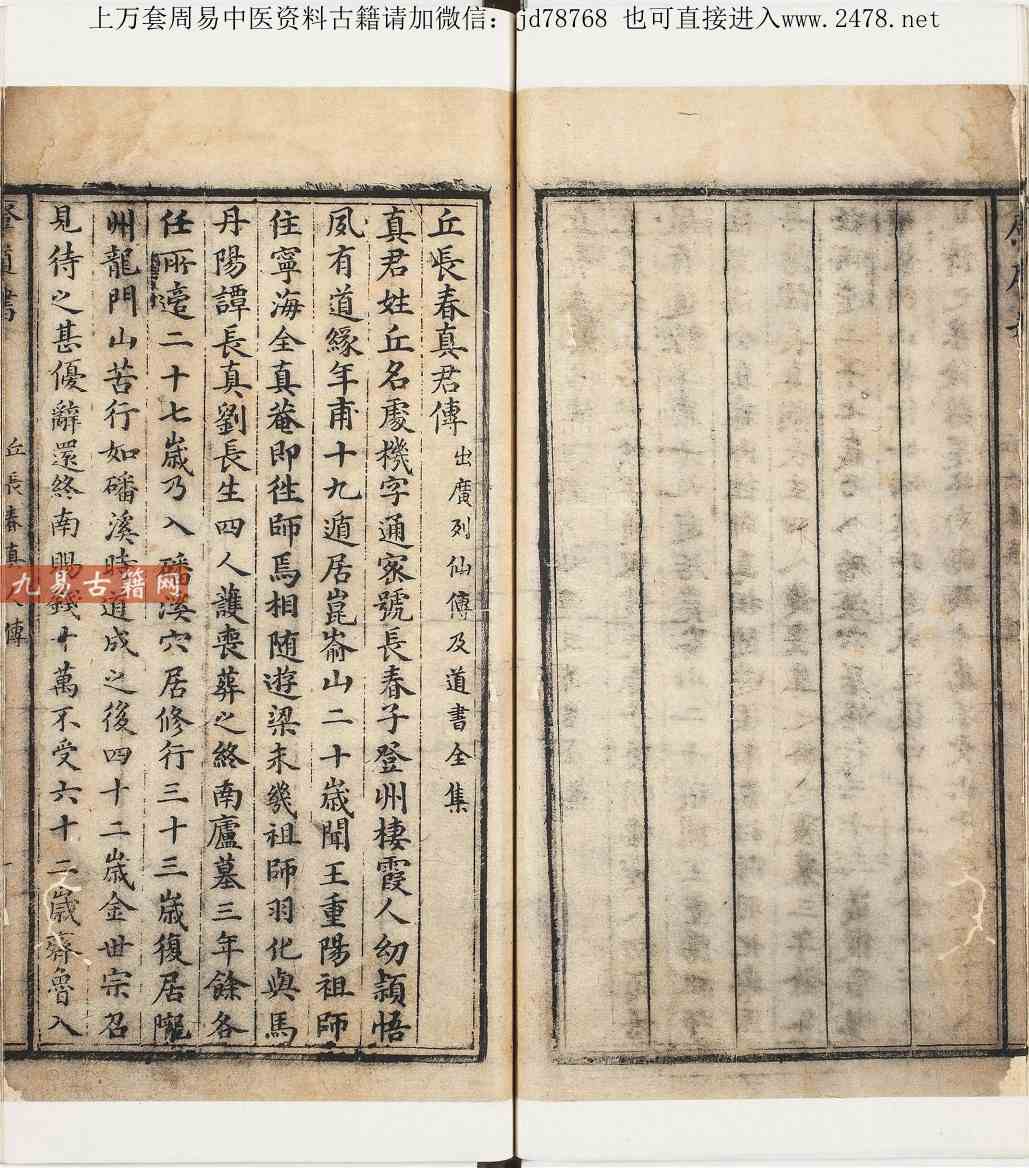 上万套周易中医资料古籍请加微信：jd78768 也可直接进入www.2478.net
丘長春真君傳 出廣列仙傳及道書全集
真君姓丘名處機字通密號長春子登州棲霞人幼頴悟
夙有道緣年甫十九遁居崑崳山二十歲聞王重陽祖師
住寧海全真菴即徃師焉相随遊梁未幾祖師羽化與馬
丹陽譚長真劉長生四人護喪葬之終南廬墓三年餘各
任所適二十七歲乃入磻溪穴居修行三十三歲復居隴
州龍門山苦行如磻溪時道成之後四十二歲金世宗召
見待之甚優辭還終南賜錢十萬不受六十二歲齊魯入
道書
丘長春真人傳
九易古籍网